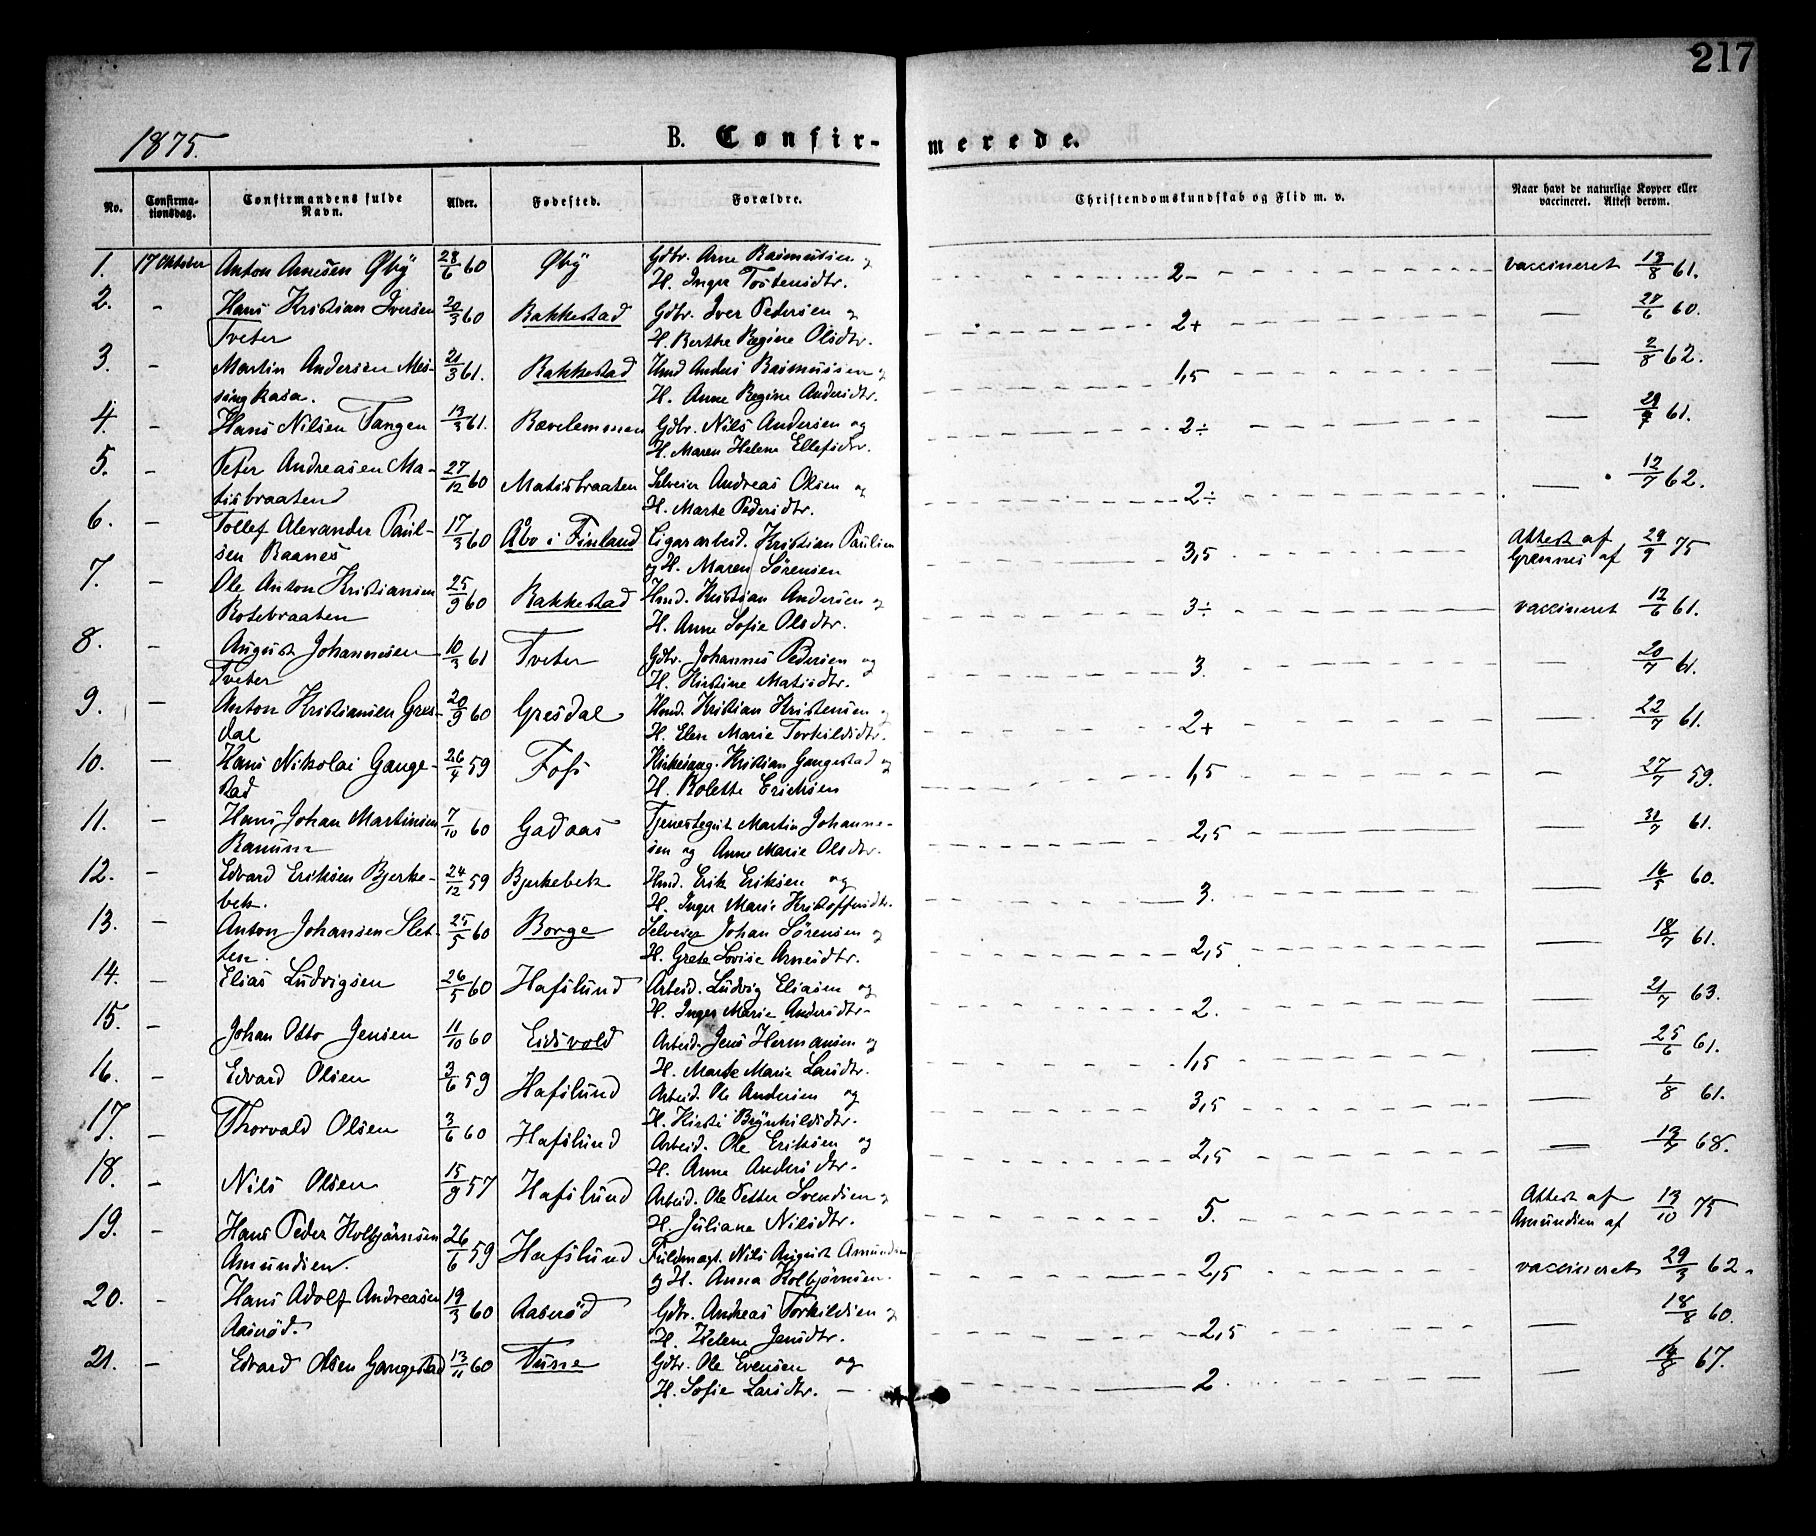 217
1875.
B. Confir-
merede.
No. Confirma-tionsdag. Confirmandens fulde Navn. Alder. Fødested. Forældre. Christendomskundskab og Flid m. v. Naar havt de naturlige Kopper eller vaccineret. Attest derom.
1. 17 Oktober Anton Arnesen Øby 28/6 60 Øby Gdbr. Arne Rasmussen og 2- vaccineret 13/8 61.
H. Inger Tostensdtr.
2. - Hans Kristian Iversen 20/3 60 Bakkestad Gdbr. Iver Pedersen og 2+ — 28/6 60.
Tveter H. Berthe Regine Olsdtr.
3. - Martin Andersen Mes- 21/3 61. Rakkestad Hmd Anders Rasmussen og 1,5 — 2/8 62.
singkasa. H. Anne Regine Andersdtr.
4. - Hans Nilsen Tangen 13/3 61. Bævelemmen Gdbr. Nils Andersen og 2÷ — 61.
H. Maren Helene Ellefsdtr.
5. - Peter Andreasen Ma- 27/12 60 Matisbraaten Selveier Andreas Olsen og 2÷ — 12/7 62.
tisbraaten H. Marte Pedersdtr.
6. - Tollef Alexander Paul- 17/3 60 Åbo i Finland Cigararbeid. Kristian Paulsen 3,5 Attest af 29/9 75
sen Raanes og H. Maren Sørensen Grønnes af
7. - Ole Anton Kristiansen 25/9 60 Rakkestad Hmd. Kristian Andersen og 3÷ vaccineret 12/6 61.
Rotebraaten H. Anne Sofie Olsdtr.
8. - August Johannesen 10/3 61 Tveter Gdbr. Johannes Pedersen og 3. — 20/7 61.
Tveter H. Kirstine Matisdtr.
9. - Anton Kristiansen Gres- 20/9 60 Gresdal Hmd. Kristian Kristensen og 2+ — 22/7 61.
dal H. Elen Marie Torkildsdtr.
10. — Hans Nikolai Gange- 26/4 59 Foss Kirkesang. Kristian Gangestad og 1,5 — 27/7 59.
stad H. Bolette Ericksen
11. - Hans Johan Martinsen 7/10 60 Gadaas Tjenestegut Martin Johanne- 2,5 — 31/7 61.
Ranum sen og Anne Marie Olsdtr.
12. - Edvard Eriksen Bjerke- 24/12 59 Bjerkebek Hmd. Erik Eriksen og 3. — 16/5 60.
bek. H. Inger Marie Kristoffersdtr.
13. - Anton Johansen Slet- 25/5 60 Borge Selveier Johan Sørensen og 2,5 — 18/7 61.
ten. H. Grete Lovise Arnesdtr.
14. - Elias Ludvigsen 26/5 60 Hafslund Arbeid. Ludvig Eliasen og 2. — 21/7 63.
H. Inger Marie Andersdtr.
15. - Johan Otto Jensen 11/10 60 Eidsvold Arbeid. Jens Hermansen og 1,5 — 25/6 61.
H. Marte Marie Larsdtr.
16. - Edvard Olsen 3/6 59 Hafslund Arbeid. Ole Andersen og 3,5 — 1/8 61.
H. Kirsti Brynhildsdtr.
17. - Thorvald Olsen 3/6 60 Hafslund Arbeid. Ole Eriksen og 2,5 — 68.
H. Anne Andersdtr.
18. - Nils Olsen 15/9 57 Hafslund Arbeid. Ole Petter Svendsen og 5. Attest af 13/10 75
H. Juliane Nilsdtr. Amundsen af
19. - Hans Peder Kolbjørnsen 26/6 59 Hafslund Fuldmægt. Nils August Amundsen 2,5 vaccineret 29/3 62.
Amundsen. og H. Anna Kolbjørnsen.
20. - Hans Adolf Andreasen 19/3 60 Aaserød Gdbr. Andreas Torkildsen og 2,5 — 18/8 60.
Aaserød. H. Helene Jensdtr.
21. - Edvard Olsen Gangestad 13/11 60 Tune Gdbr. Ole Evensen og 2 — 14/8 67.
H. Sofie Larsdtr. —